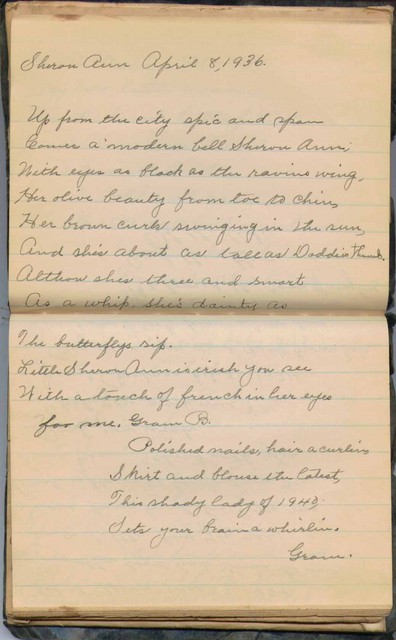 Sheron Ann April 8, 1936.
Up from the city spic and span
Comes a modern bell Sheron Ann;
With eyes as black as the ravins wing,
Her olive beauty from toe to chin,
Her brown curls swinging in the sun,
And she's about as tall as Daddies Thumb.
Althow shes three and smart
As a whip. She's dainty as
The butterflys sip.
Little Sheron Ann is irish you see
With a touch of french in her eyes
for me. Gram B.
Polished nails, hair a curlin,
Skirt and blouse the latest,
This shady lady of 1943,
Sets your brain a whirlin.
Gram.